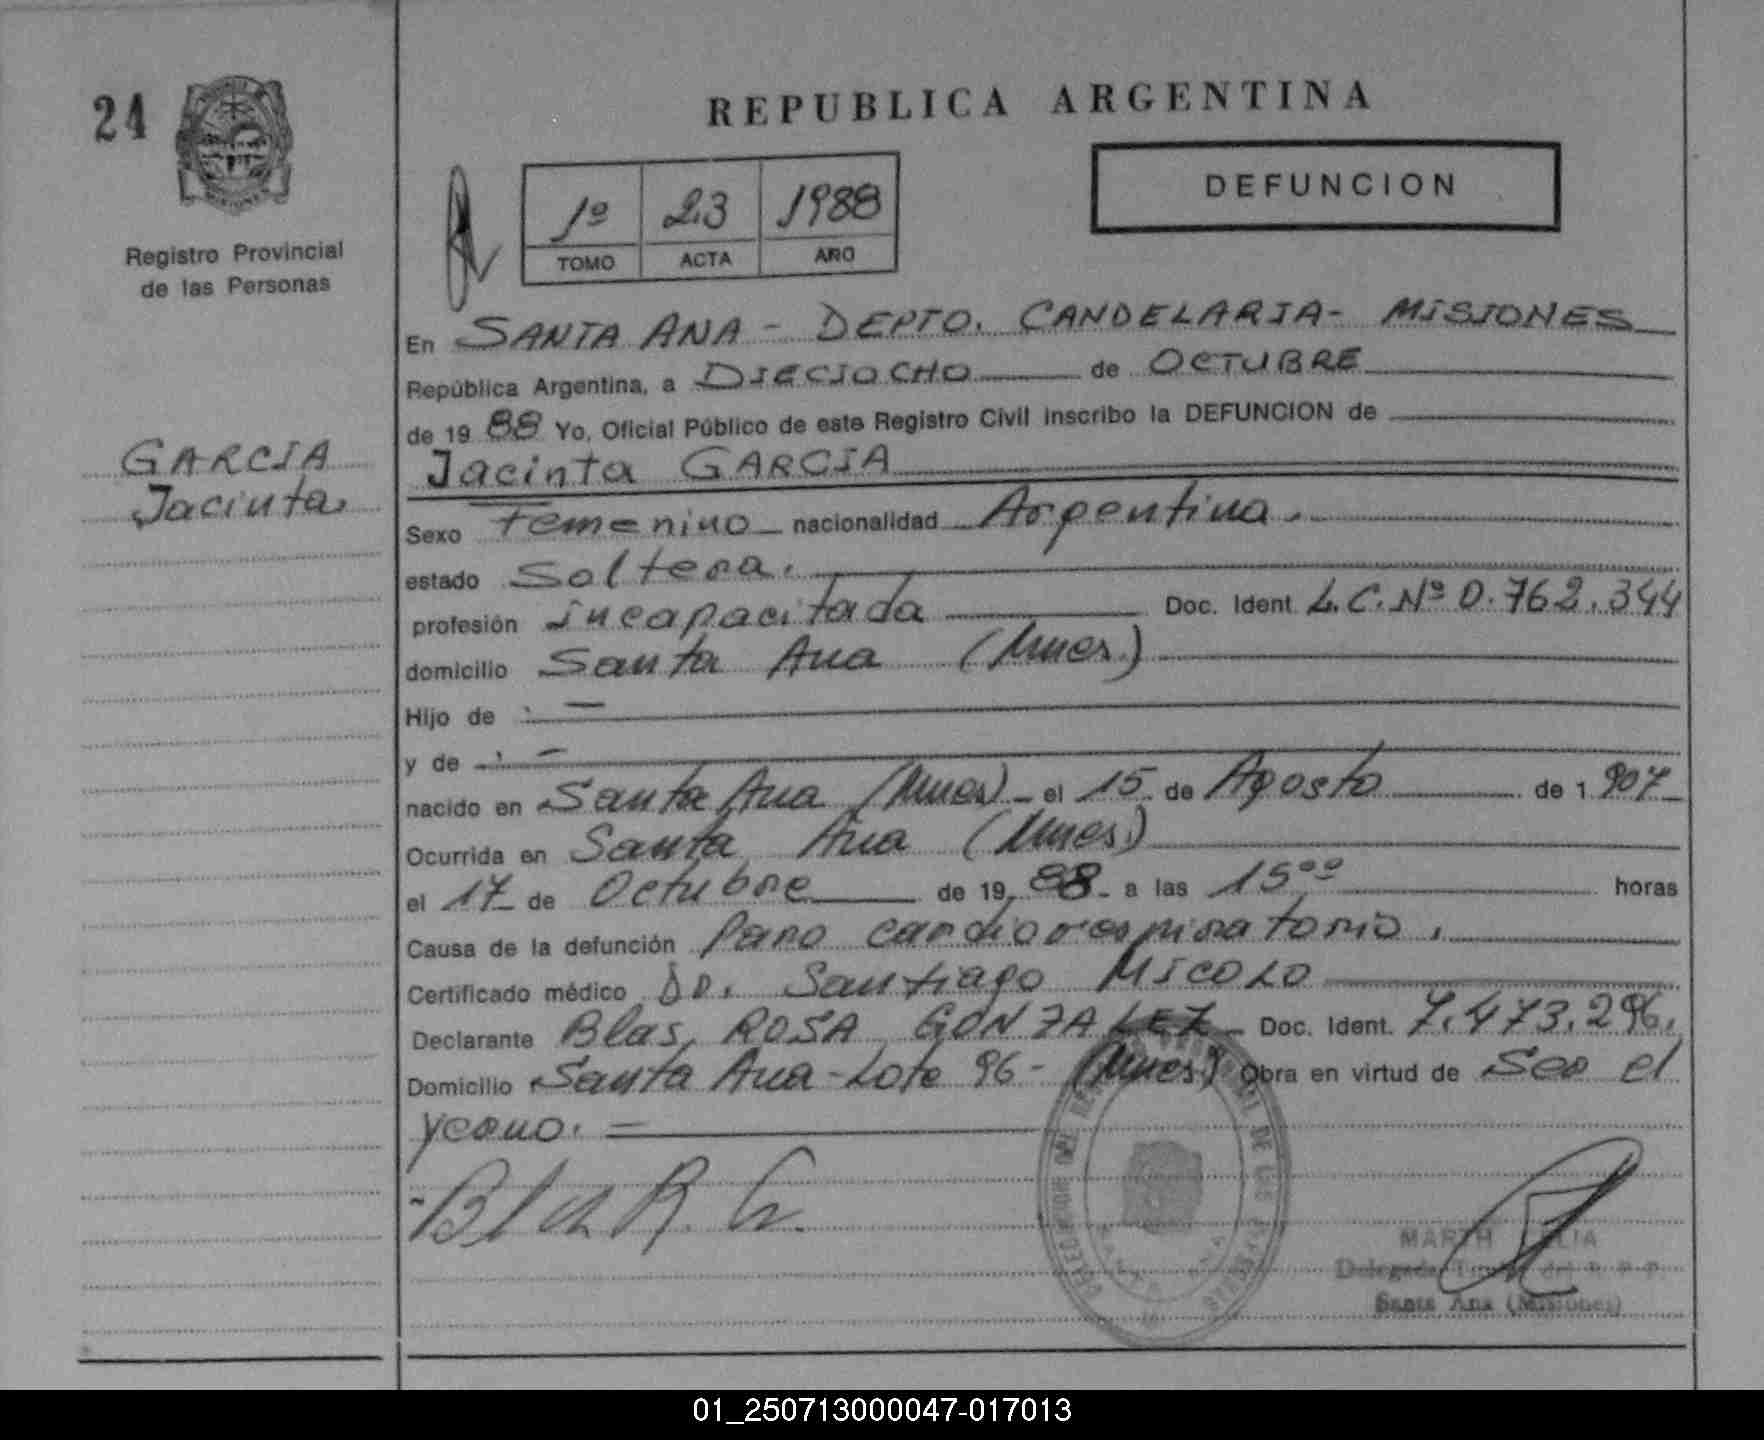 24
REPUBLICA ARGENTINA
DEFUNCION
1º 23 1988
TOMO ACTA AÑO
Registro Provincial
de las Personas
GARCIA
Jacinta
En SANTA ANA - DEPTO. CANDELARIA - MISIONES
República Argentina, a DIECIOCHO de OCTUBRE
de 1988 Yo, Oficial Público de este Registro Civil inscribo la DEFUNCION de
Jacinta GARCIA
Sexo Femenino nacionalidad Argentina.
estado Soltera.
profesión incapacitada Doc. Ident. L.C. Nº 0.762.344
domicilio Santa Ana (Mnes.)
Hijo de : —
y de : —
nacido en Santa Ana (Mnes) - el 15 de Agosto de 1907
Ocurrida en Santa Ana (Mnes.)
el 17 de Octubre de 1988 - a las 15ºº horas
Causa de la defunción Paro cardiorespiratorio.
Certificado médico Dr. Santiago MICOLO
Declarante Blas ROSA GONZALEZ - Doc. Ident. 7.473.296.
Domicilio Santa Ana - Lote 96 - (Mnes) Obra en virtud de Ser el
yerno. —
Santa Ana (Misiones)
01_250713000047-017013